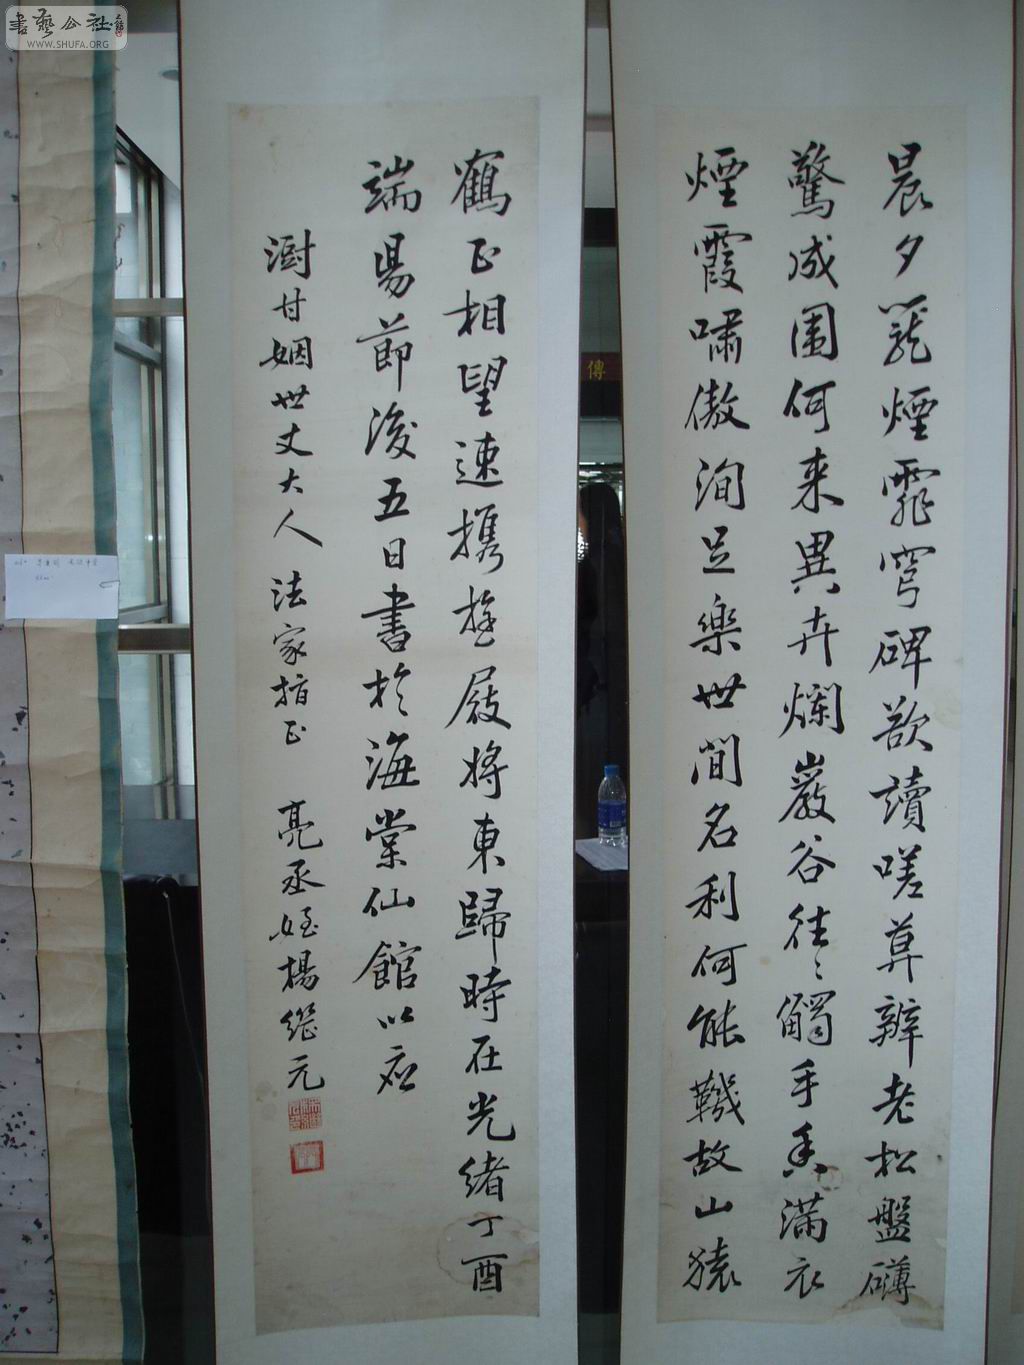 晨夕籠煙霏穹碑欲讀嗟莫辨老松盤礴
驚成圍何来異卉爛巖谷往〻觸手香滿衣
煙霞嘯傲洵足樂世間名利何能鞿故山猿
鶴正相望速携遊屐將東歸時在光緒丁酉
端昜節後五日書於海棠仙館以應
澍甘姻世丈大人 法家指正 亮丞姪楊繼元
傳
書藝公社
WWW.SHUFA.ORG